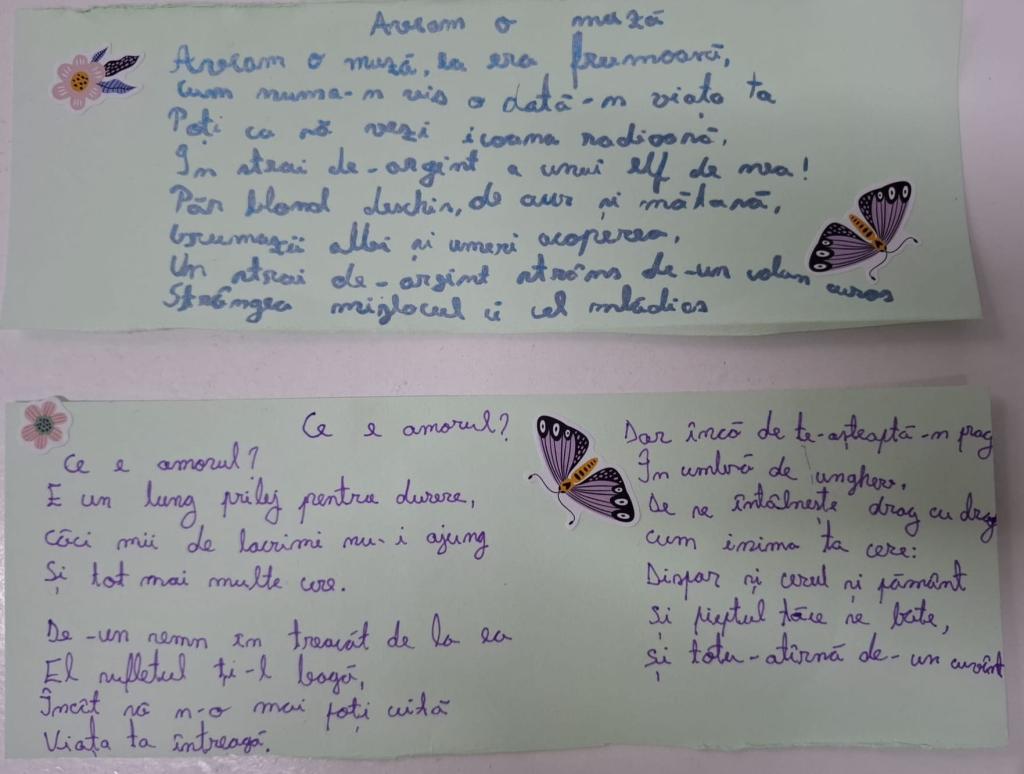 Aveam o muză
Aveam o muză, ea era frumoasă,
Cum numa-n vis o dată-n viața ta
Poți ca să vezi icoana radioasă,
În strai de-argint a unui elf de nea!
Păr blond deschis, de aur și mătasă,
Grumazii albi și umeri acoperea,
Un strai de-argint strâns de-un colan auros
Strângea mijlocul ei cel mlădios
Ce e amorul?
Ce e amorul?
E un lung prilej pentru durere,
Căci mii de lacrimi nu-i ajung
Și tot mai multe cere.
De-un semn în treacăt de la ea
El sufletul ți-l leagă,
Încât să n-o mai poți uita
Viața ta întreagă.
Dar încă de te-așteaptă-n prag
În umbră de unghere,
De se întâlnește drag cu drag
Cum inima ta cere:
Dispar și cerul și pământ
Și pieptul tău se bate,
Și totu-atîrnă de-un cuvînt